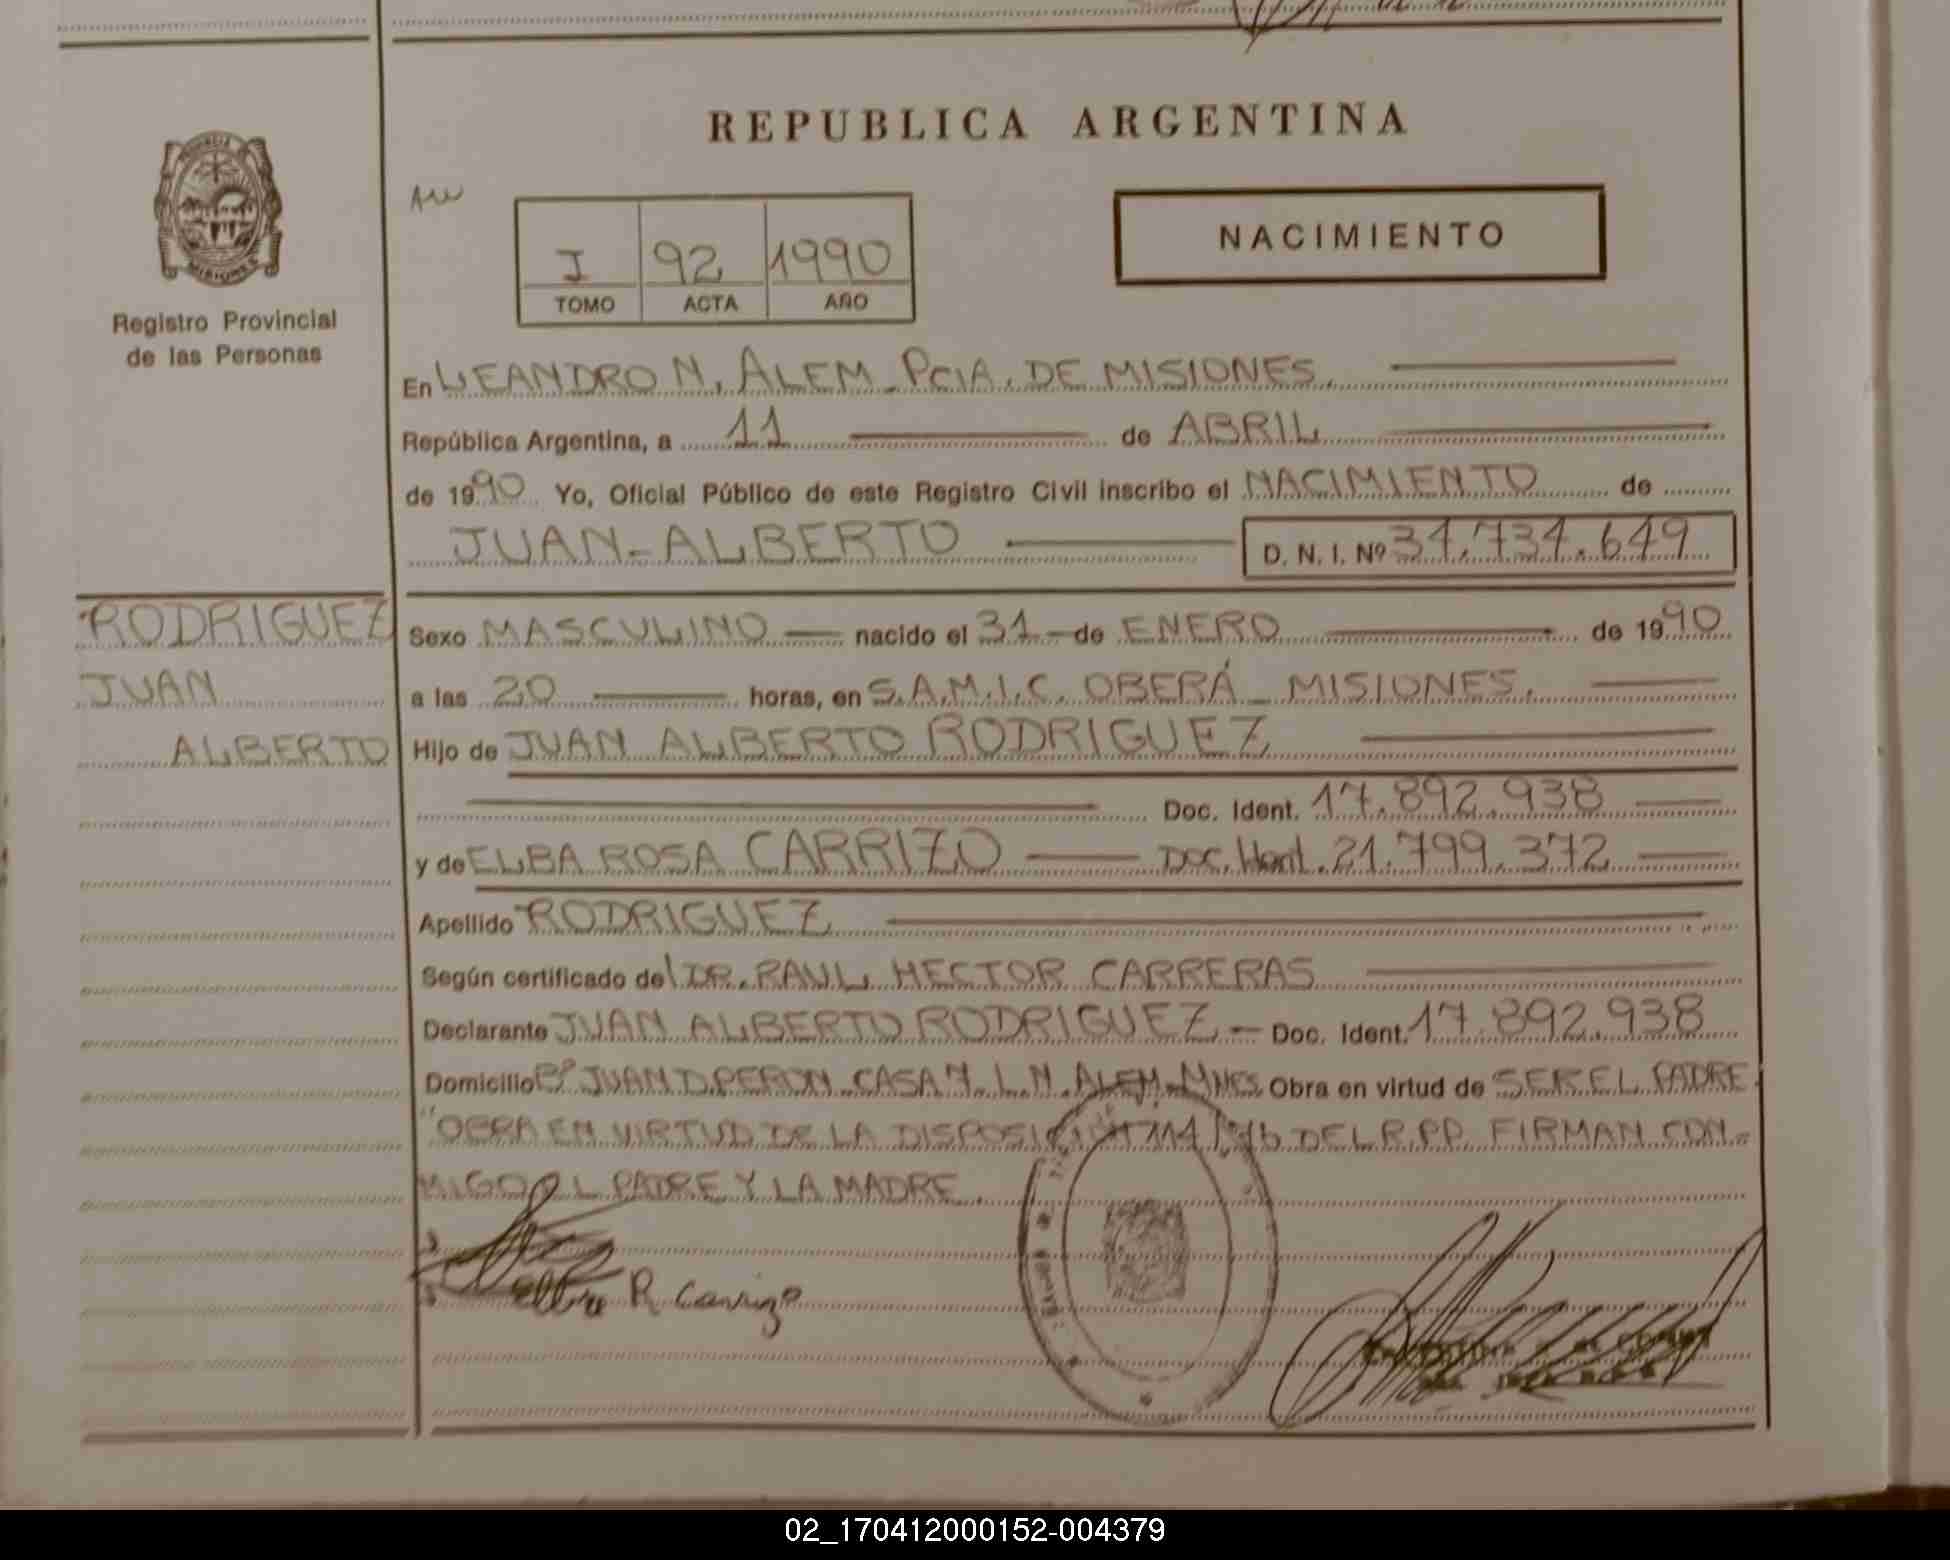 REPUBLICA ARGENTINA
MISIONES
Registro Provincial
de las Personas
I 92 1990
TOMO ACTA AÑO
NACIMIENTO
En LEANDRO N. ALEM PCIA. DE MISIONES.
República Argentina, a 11 de ABRIL
de 1990 Yo, Oficial Público de este Registro Civil inscribo el NACIMIENTO de
JUAN-ALBERTO D. N. I. Nº 34.734.649
RODRIGUEZ
JUAN
ALBERTO
Sexo MASCULINO nacido el 31 de ENERO de 1990
a las 20 horas, en S.A.M.I.C. OBERÁ _ MISIONES.
Hijo de JUAN ALBERTO RODRIGUEZ
Doc. Ident. 17.892.938
y de ELBA ROSA CARRIZO DOC. Ident. 21.799.372
Apellido RODRIGUEZ
Según certificado del DR. RAUL HECTOR CARRERAS
Declarante JUAN ALBERTO RODRIGUEZ - Doc. Ident. 17.892.938
Domicilio Bº JUAN D. PERON CASA 7. L. N. ALEM. MNES. Obra en virtud de SER EL PADRE.
"OBRA EN VIRTUD DE LA DISPOSICION 714 DEL R.PP. FIRMAN CON-
MIGO EL PADRE Y LA MADRE.
Elba R Carrizo
02_170412000152-004379